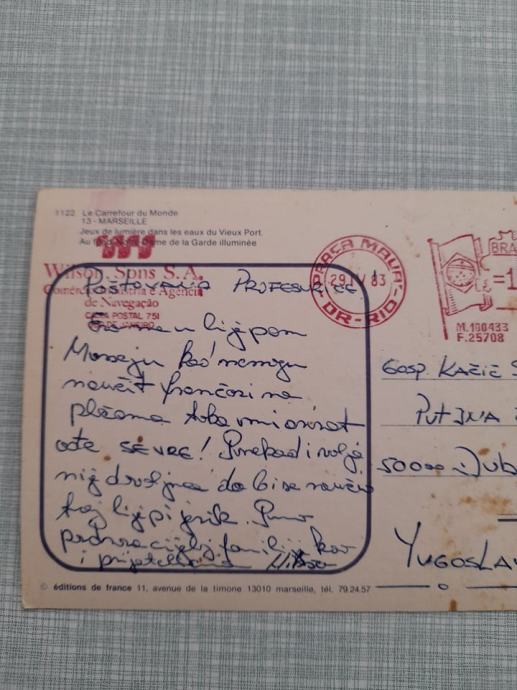 1122 Le Carrefour du Monde
13 - MARSEILLE
Jeux de lumière dans les eaux du Vieux Port.
Au fond Notre-Dame de la Garde illuminée
Wilson, Sons S.A.
Comércio, Indústria e Agência
de Navegação
CAIXA POSTAL 751
RIO DE JANEIRO
PRAÇA MAUÁ
29 IV 83
DR-RIO
BRA
=1
M.100433
F.25708
POŠTOVANA PROFESORICE!
u lijepom
Marseju kad nemogu
naučit francozi na
plažama
SEVRE! Ponekad i volja
nije dovoljna da bi se naučio
taj lijepi jezik. Puno
pozdrava cijeloj familiji kao
i prijateljima
GOSP KAČIĆ S
PUT INA
50000 Dub
YUGOSLAV
© éditions de france 11, avenue de la timone 13010 marseille, tél. 79.24.57